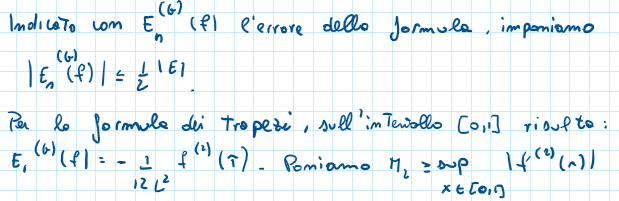 Indicato con E_n^(G)(f) l'errore dello formula, imponiamo
|E_n^(G)(f)| ≤ 1/2 |E|.
Per la formula dei Trapezi, sull'intervallo [0,1] risulta:
E_1^(G)(f) = - 1/(12 L^2) f^(2)(τ). Poniamo M_2 ≥ sup_{x∈[0,1]} |f^(2)(x)|